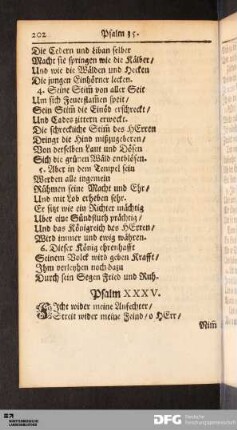 202 Psalm 35.
Die Cedern und Liban selber
Macht sie springen wie die Kälber/
Und wie die Wälden und Hecken
Die jungen Einhörner lecken.
4. Seine Stim̃ von aller Seit
Um sich Feuerflam̃en speit/
Sein Stim̃ die Einöd erschreckt/
Und Cades zittern erweckt.
Die schreckliche Stim̃ des HErren
Dringt die Hind mißzugeberen/
Von derselben Laut und Dösen
Sich die grünen Wäld entblösen.
5. Aber in dem Tempel sein
Werden alle ingemein
Rühmen seine Macht und Ehr/
Und mit Lob erheben sehr.
Er sitzt wie ein Richter mächtig
Uber eine Sündfluth prächtig/
Und das Königreich des HErren/
Wird immer und ewig währen.
6. Dieser König ehrenhafft
Seinem Volck wird geben Krafft/
Ihm verleyhen noch dazu
Durch sein Segen Fried und Ruh.
Psalm XXXV.
FIcht wider meine Anfechter/
Streit wider meine Feind/ o HErr/
Nim̃
DFG Deutsche
Forschungsgemeinschaft